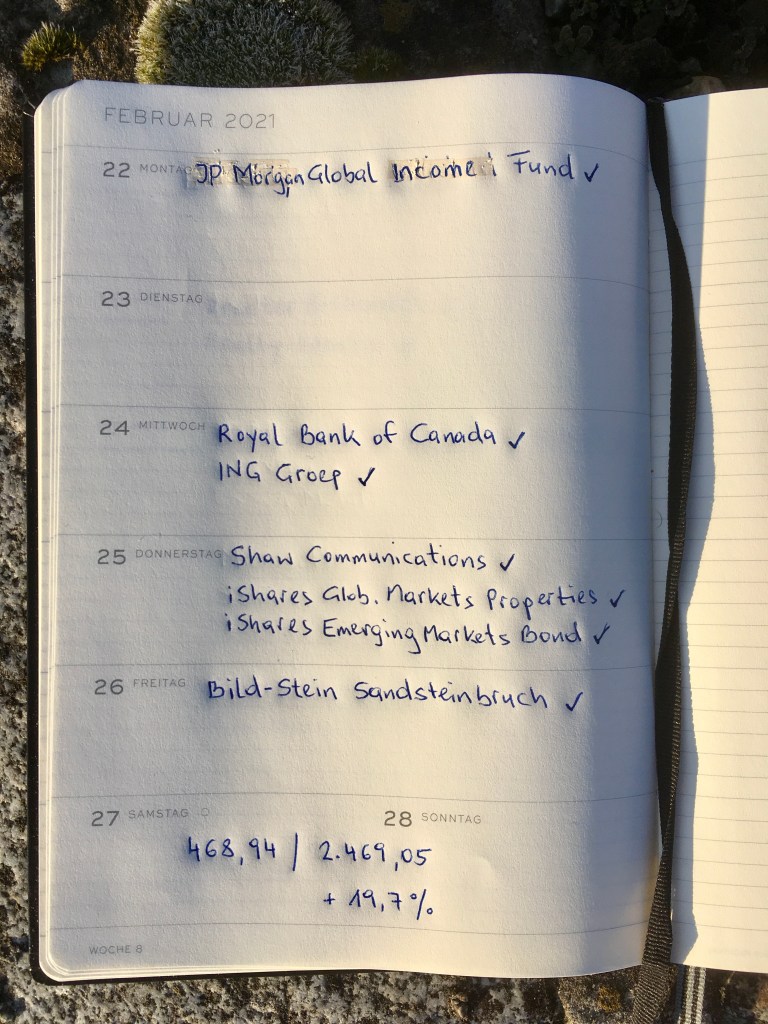 FEBRUAR 2021
22 MONTAG JP Morgan Global Income Fund ✓
23 DIENSTAG
24 MITTWOCH Royal Bank of Canada ✓
ING Groep ✓
25 DONNERSTAG Shaw Communications ✓
iShares Glob. Markets Properties ✓
iShares Emerging Markets Bond ✓
26 FREITAG Bild-Stein Sandsteinbruch ✓
27 SAMSTAG 28 SONNTAG
468,94 / 2.469,05
+ 19,7%
WOCHE 8